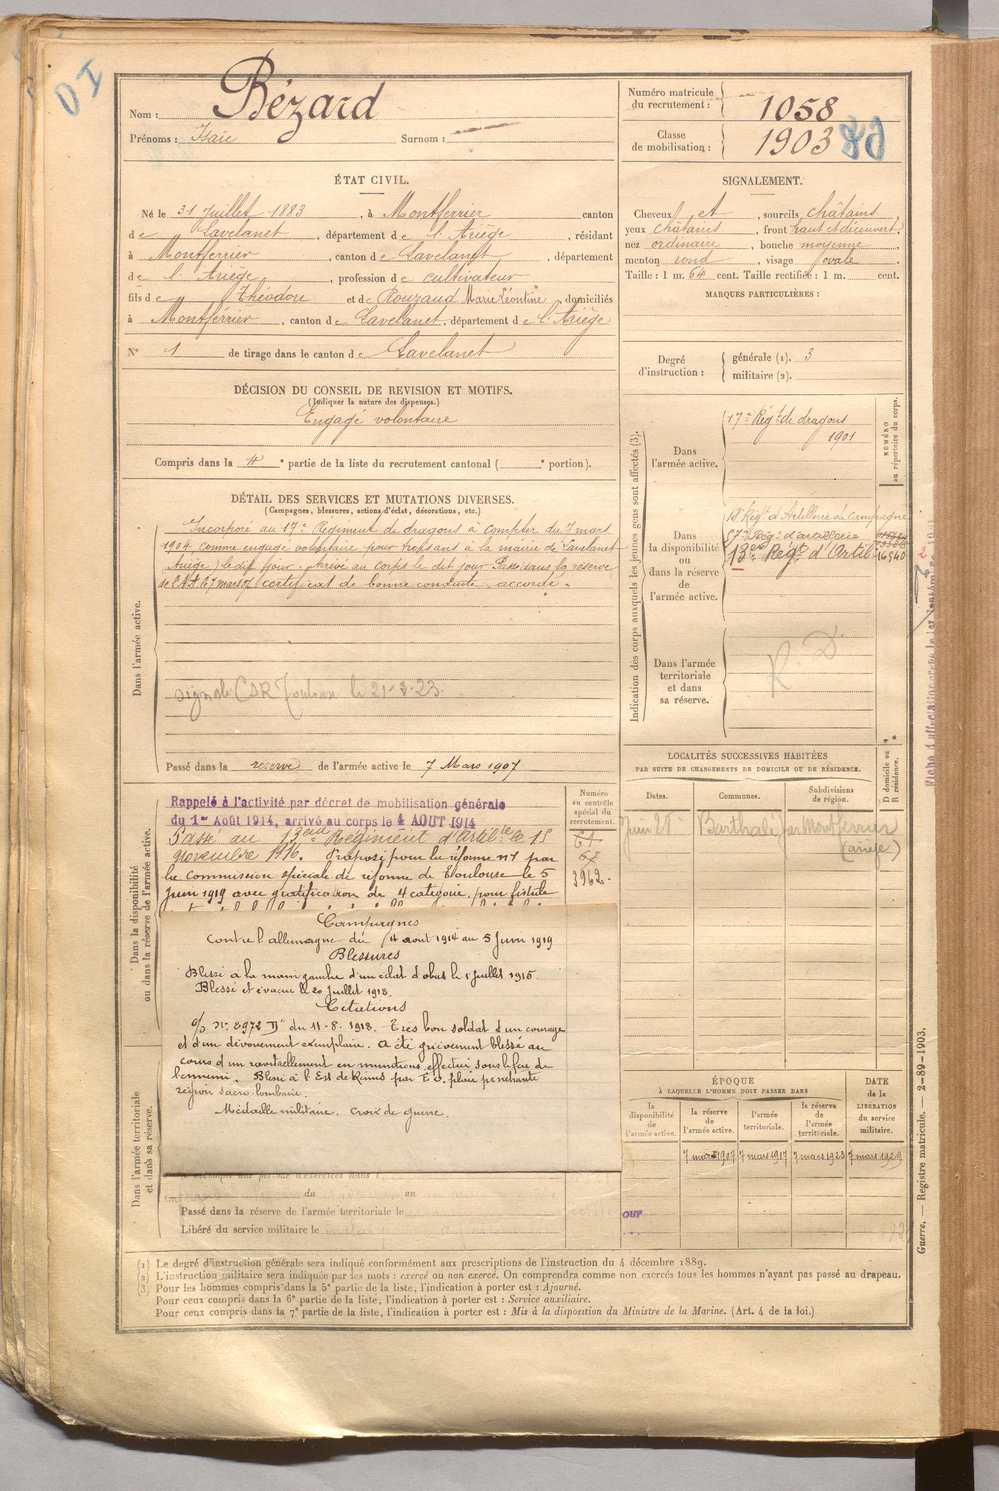 Nom : Bézard
Prénoms : Isaïe Surnom :
Numéro matricule du recrutement : 1058
Classe de mobilisation : 1903
ÉTAT CIVIL.
Né le 31 Juillet 1883, à Montferrier canton
de Lavelanet, département de l'Ariège, résidant
à Montferrier, canton de Lavelanet, département
de l'Ariège, profession de cultivateur
fils de Théodore et de Rouzaud Marie Léontine, domiciliés
à Montferrier, canton de Lavelanet, département de l'Ariège
N° 1 de tirage dans le canton de Lavelanet
SIGNALEMENT.
Cheveux et, sourcils châtains
yeux châtains, front haut et découvert,
nez ordinaire, bouche moyenne
menton rond, visage ovale.
Taille : 1 m. 64 cent. Taille rectifiée : 1 m. cent.
MARQUES PARTICULIÈRES :
Degré d'instruction : générale (1). 3
militaire (2).
DÉCISION DU CONSEIL DE REVISION ET MOTIFS.
(Indiquer la nature des dispenses.)
Engagé volontaire
Compris dans la 4e partie de la liste du recrutement cantonal ( e portion).
DÉTAIL DES SERVICES ET MUTATIONS DIVERSES.
(Campagnes, blessures, actions d'éclat, décorations, etc.)
Dans l'armée active.
Incorporé au 17e Régiment de dragons à compter du 7 mars
1904, comme engagé volontaire pour trois ans à la mairie de Lavelanet
(Ariège) le dit jour. Arrivé au corps le dit jour Passé dans la réserve
de l'A.A. le 7 mars 07 Certificat de bonne conduite accordé.
Signalé CSR Toulouse le 21-8-23.
Passé dans la réserve de l'armée active le 7 Mars 1907
Indication des corps auxquels les jeunes gens sont affectés (3).
NUMÉRO au répertoire du corps.
Dans l'armée active.
17e Régt de dragons
1901
Dans la disponibilité ou dans la réserve de l'armée active.
18e Régt d'Artillerie de Campagne
57e Régt d'artillerie
13e Régt d'Artil
Dans l'armée territoriale et dans sa réserve.
LOCALITÉS SUCCESSIVES HABITÉES
PAR SUITE DE CHANGEMENTS DE DOMICILE OU DE RÉSIDENCE.
Dates. Communes. Subdivisions de région. D domicile ou R résidence.
Juin 28 Barthalé par Montferrier
(ariège)
Dans la disponibilité ou dans la réserve de l'armée active.
Numéro au contrôle spécial du recrutement.
3962.
Rappelé à l'activité par décret de mobilisation générale
du 1er Août 1914, arrivé au corps le 4 AOUT 1914
Passé au 13eme Régiment d'Artilie le 15
novembre 1916. Proposé pour la réforme n°1 par
la Commission spéciale de réforme de Toulouse le 5
Juin 1919 avec gratification de 4 catégorie, pour fistule
Campagnes
Contre l'allemagne du 4 aout 1914 au 5 Juin 1919
Blessures
Blessé a la main gauche d'un éclat d'obus le 1 Juillet 1915.
Blessé et évacué le 20 Juillet 1918.
Citations
o/g n° 8972 D" du 11-8-1918. Très bon soldat d'un courage
et d'un dévouement exemplaire. A été grièvement blessé au
cours d'un ravitaillement en munitions effectué sous le feu de
l'ennemi. Blessé à l'Est de Reims par E.O. plaie pénétrante
région sacro lombaire.
Médaille militaire. Croix de guerre.
Dans l'armée territoriale et dans sa réserve.
du au
Passé dans la réserve de l'armée territoriale le
Libéré du service militaire le
our
ÉPOQUE
À LAQUELLE L'HOMME DOIT PASSER DANS
la disponibilité de l'armée active.
la réserve de l'armée active.
l'armée territoriale.
la réserve de l'armée territoriale.
DATE de la LIBÉRATION du service militaire.
7 mars 1907 7 mars 1917 7 mars 1923 7 mars 1929
(1) Le degré d'instruction générale sera indiqué conformément aux prescriptions de l'instruction du 4 décembre 1889.
(2) L'instruction militaire sera indiquée par les mots : exercé ou non exercé. On comprendra comme non exercés tous les hommes n'ayant pas passé au drapeau.
(3) Pour les hommes compris dans la 5e partie de la liste, l'indication à porter est : Ajourné.
Pour ceux compris dans la 6e partie de la liste, l'indication à porter est : Service auxiliaire.
Pour ceux compris dans la 7e partie de la liste, l'indication à porter est : Mis à la disposition du Ministre de la Marine. (Art. 4 de la loi.)
Guerre. — Registre matricule. — 2-89-1903.